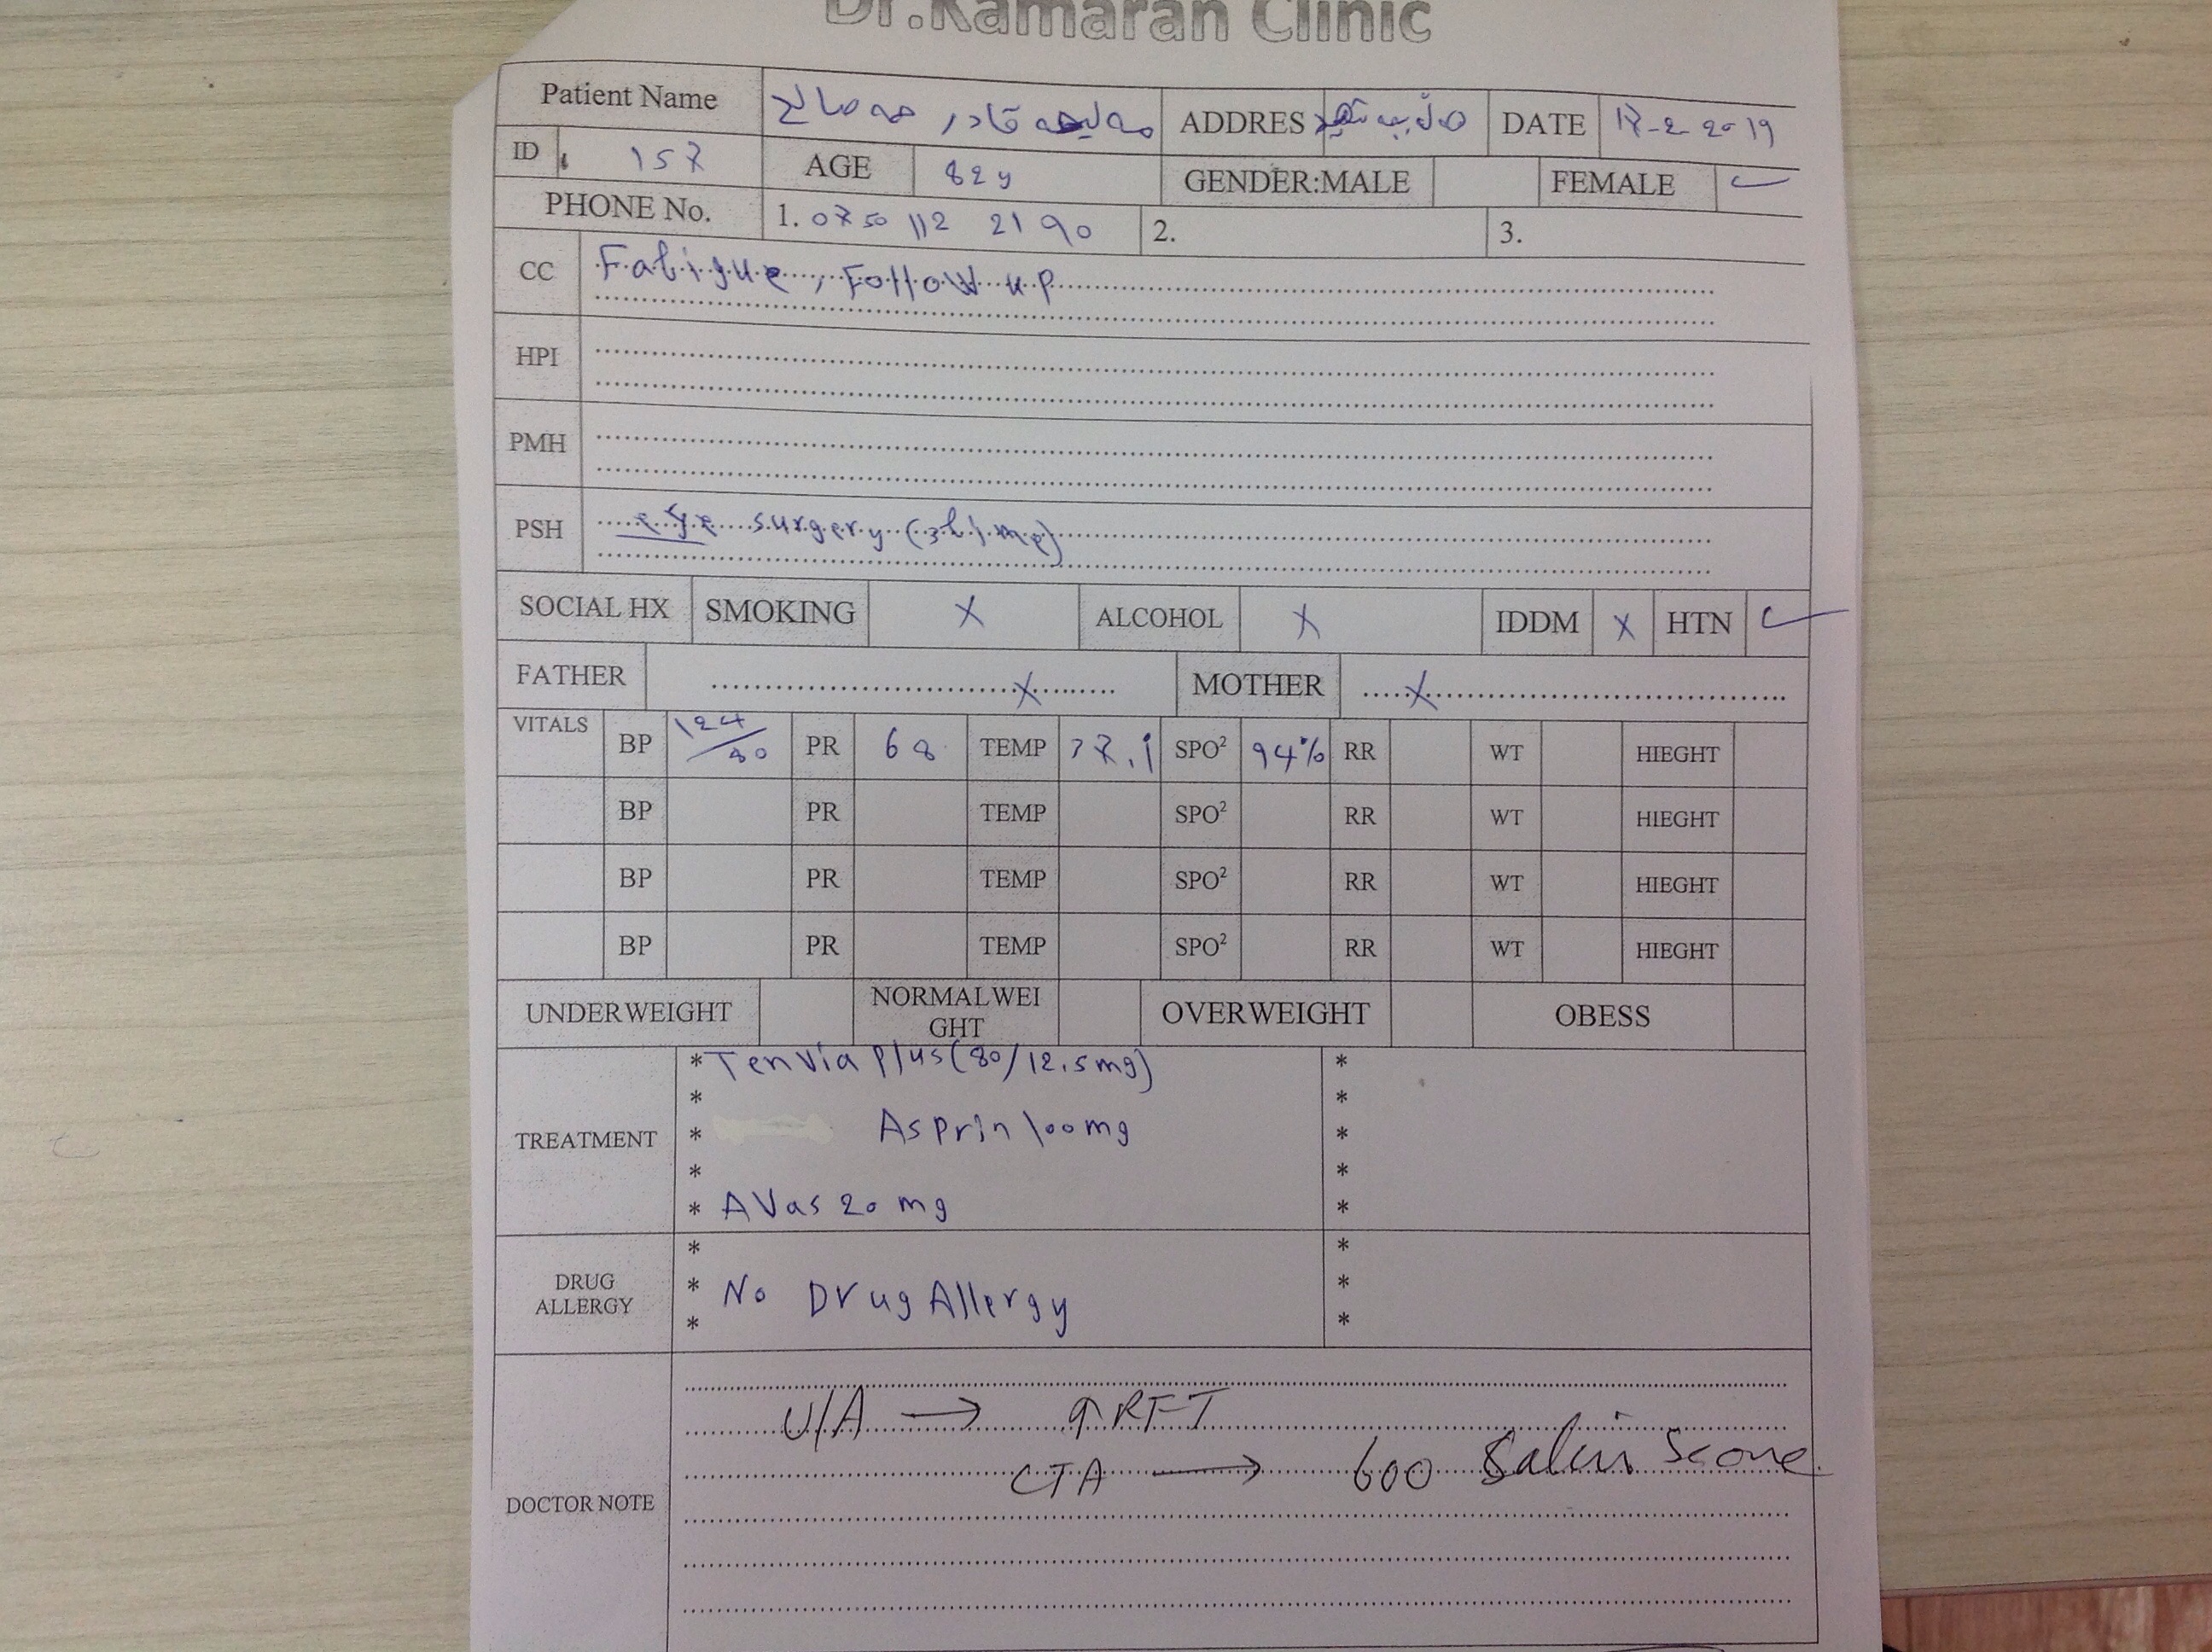 Dr.Kamaran Clinic
Patient Name مەلیحە قادر حمە صالح ADDRES DATE 17-2-2019
ID 157 AGE 82y GENDER:MALE FEMALE ✓
PHONE No. 1. 0750 112 2190 2. 3.
CC Fatigue, Follow up
HPI
PMH
PSH eye surgery (3time)
SOCIAL HX SMOKING X ALCOHOL X IDDM X HTN ✓
FATHER X MOTHER X
VITALS BP 124/80 PR 68 TEMP 37.1 SPO² 94% RR WT HIEGHT
BP PR TEMP SPO² RR WT HIEGHT
BP PR TEMP SPO² RR WT HIEGHT
BP PR TEMP SPO² RR WT HIEGHT
UNDERWEIGHT NORMALWEI
GHT OVERWEIGHT OBESS
TREATMENT
* Tenvia plus (80/12.5mg) *
* *
* Asprin 100mg *
* *
* AVas 20 mg *
DRUG
ALLERGY
* *
* No Drug Allergy *
* *
DOCTOR NOTE
U/A → ↑RFT
CTA → 600 Score